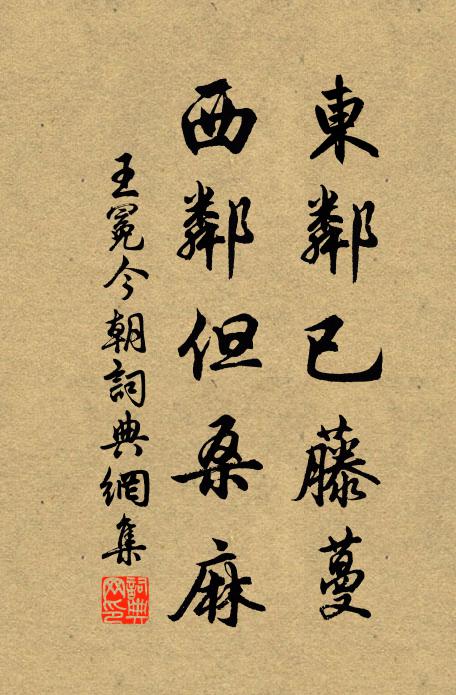 東鄰已藤蔓
西鄰但桑麻
王冕今朝詞典網集
詞典网印